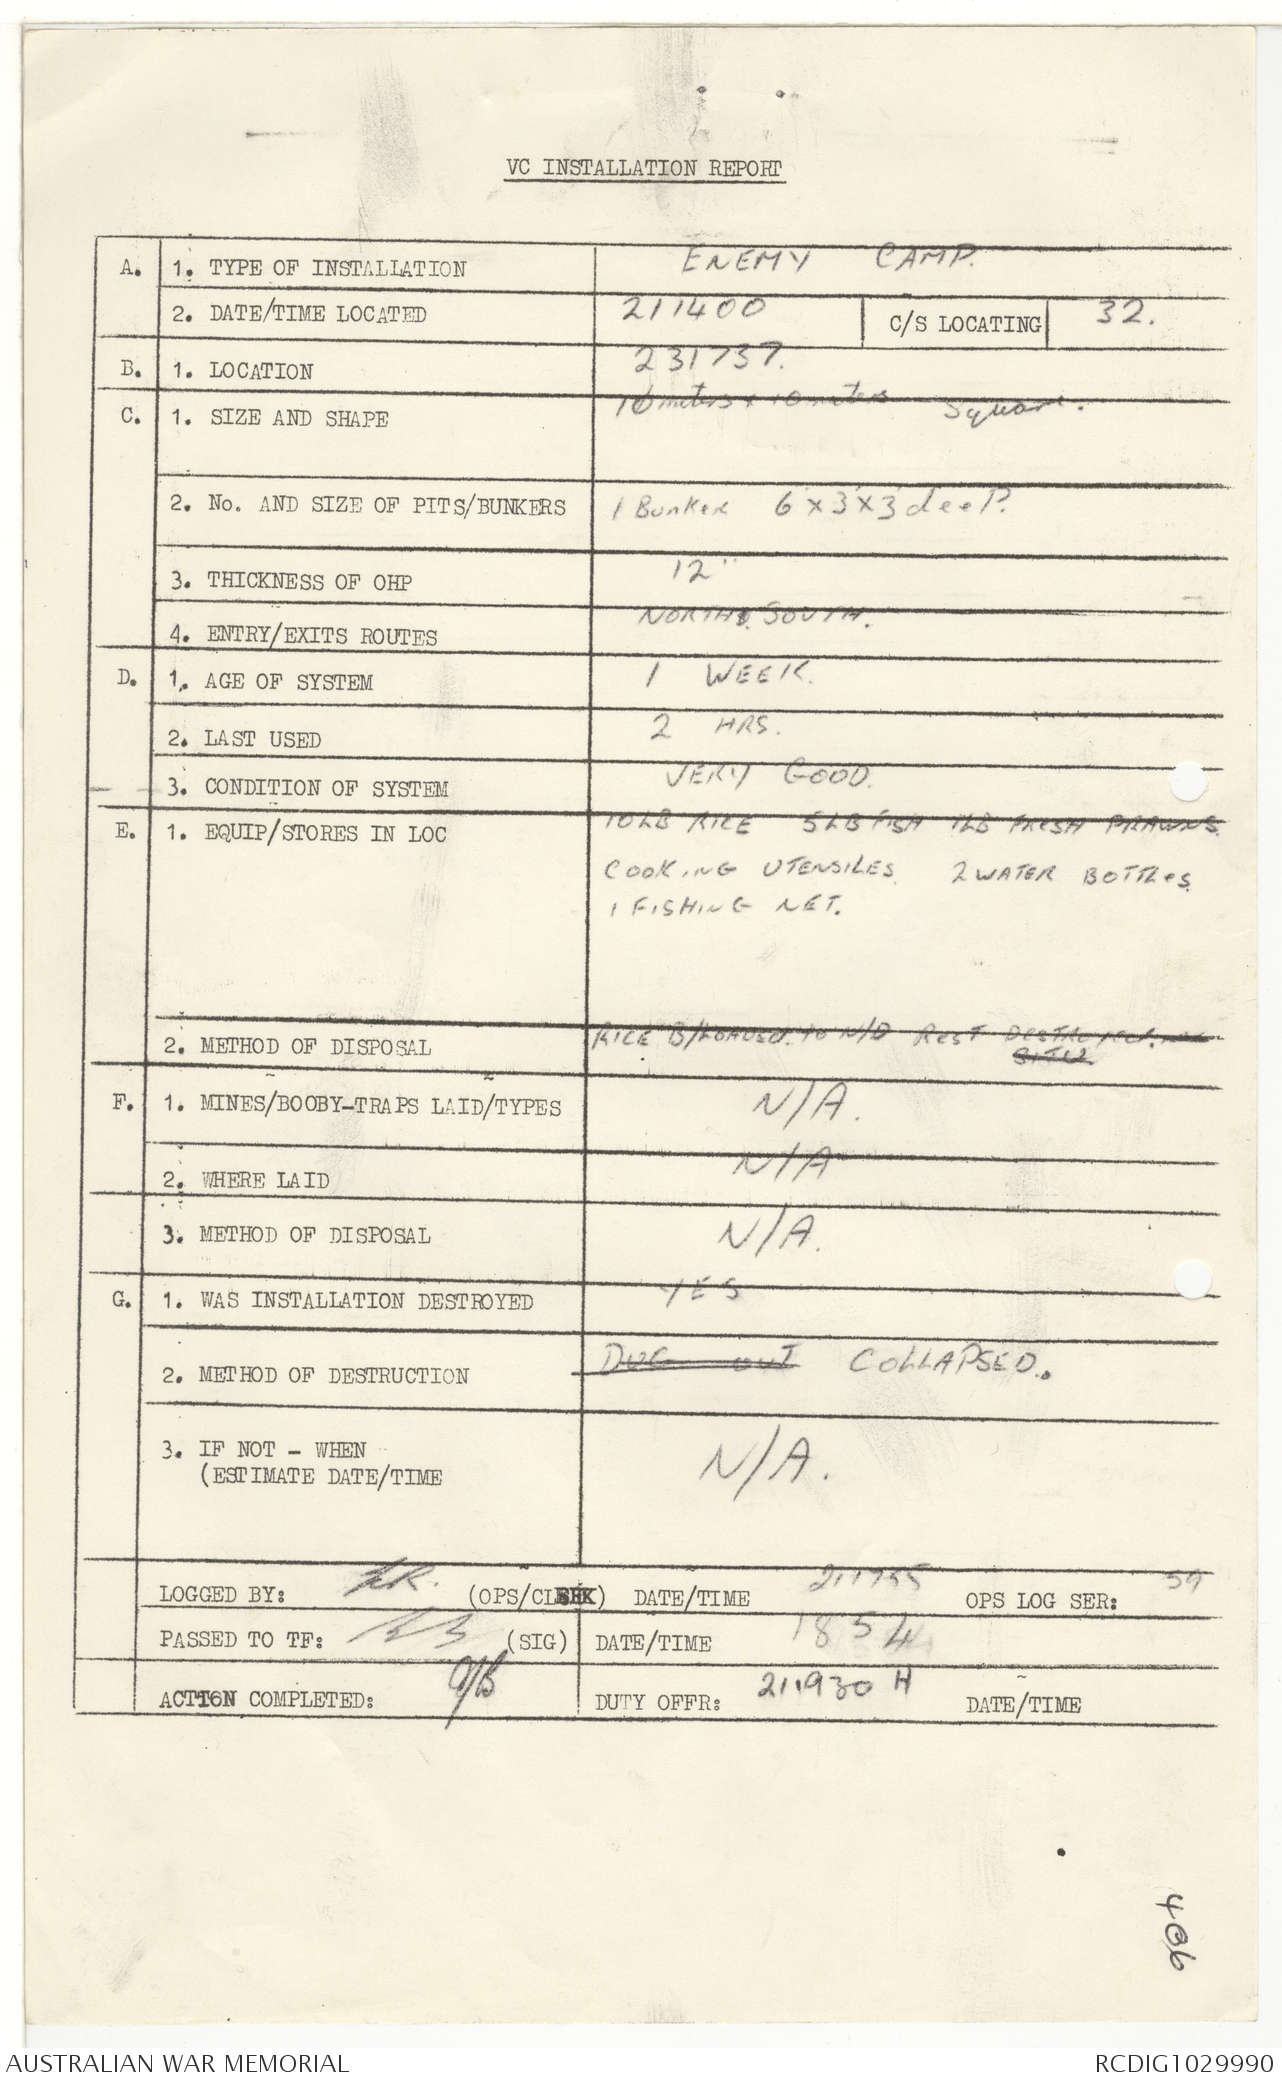 VC INSTALLATION REPORT
A. 1. TYPE OF INSTALLATION ENEMY CAMP.
2. DATE/TIME LOCATED 211400 C/S LOCATING 32.
B. 1. LOCATION 231737.
C. 1. SIZE AND SHAPE 10 meters x 10 meters Square.
2. No. AND SIZE OF PITS/BUNKERS 1 Bunker 6'x3'x3'deeP.
3. THICKNESS OF OHP 12"
4. ENTRY/EXITS ROUTES NORTH. SOUTH.
D. 1. AGE OF SYSTEM 1 WEEK.
2. LAST USED 2 HRS.
3. CONDITION OF SYSTEM VERY GOOD.
E. 1. EQUIP/STORES IN LOC 10LB RICE 5LB FISH 1LB FRESH PRAWNS
COOKING UTENSILES 2 WATER BOTTLES
1 FISHING NET.
2. METHOD OF DISPOSAL RICE B/LOADED. TO N/D REST DESTROYED. IN
SITU.
F. 1. MINES/BOOBY-TRAPS LAID/TYPES N/A.
2. WHERE LAID N/A
3. METHOD OF DISPOSAL N/A.
G. 1. WAS INSTALLATION DESTROYED YES
2. METHOD OF DESTRUCTION DUG OUT COLLAPSED.
3. IF NOT - WHEN N/A.
(ESTIMATE DATE/TIME
LOGGED BY: (OPS/CLERK) DATE/TIME 211755 OPS LOG SER: 59
PASSED TO TF: (SIG) DATE/TIME 1854
ACTION COMPLETED: DUTY OFFR: 211930 H DATE/TIME
406
AUSTRALIAN WAR MEMORIAL RCDIG1029990